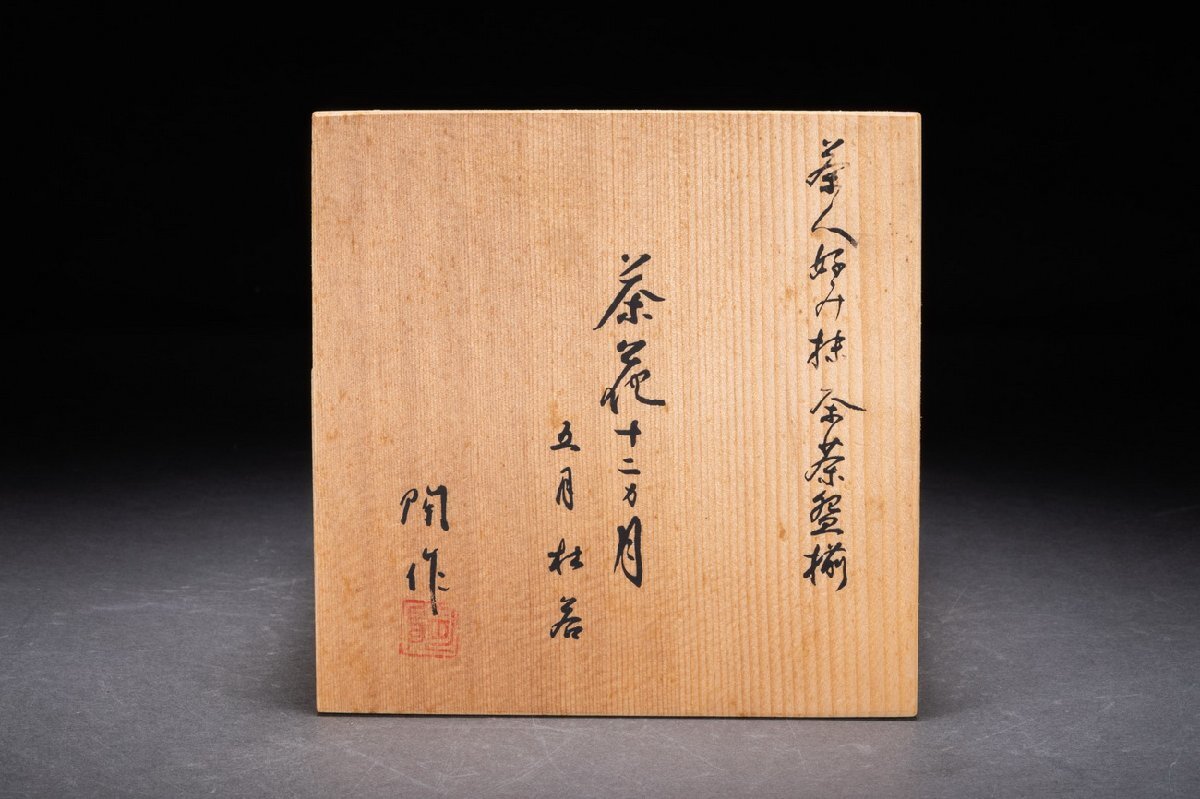 茶人好み抹茶茶盌揃
茶花十二カ月
五月 杜若
作